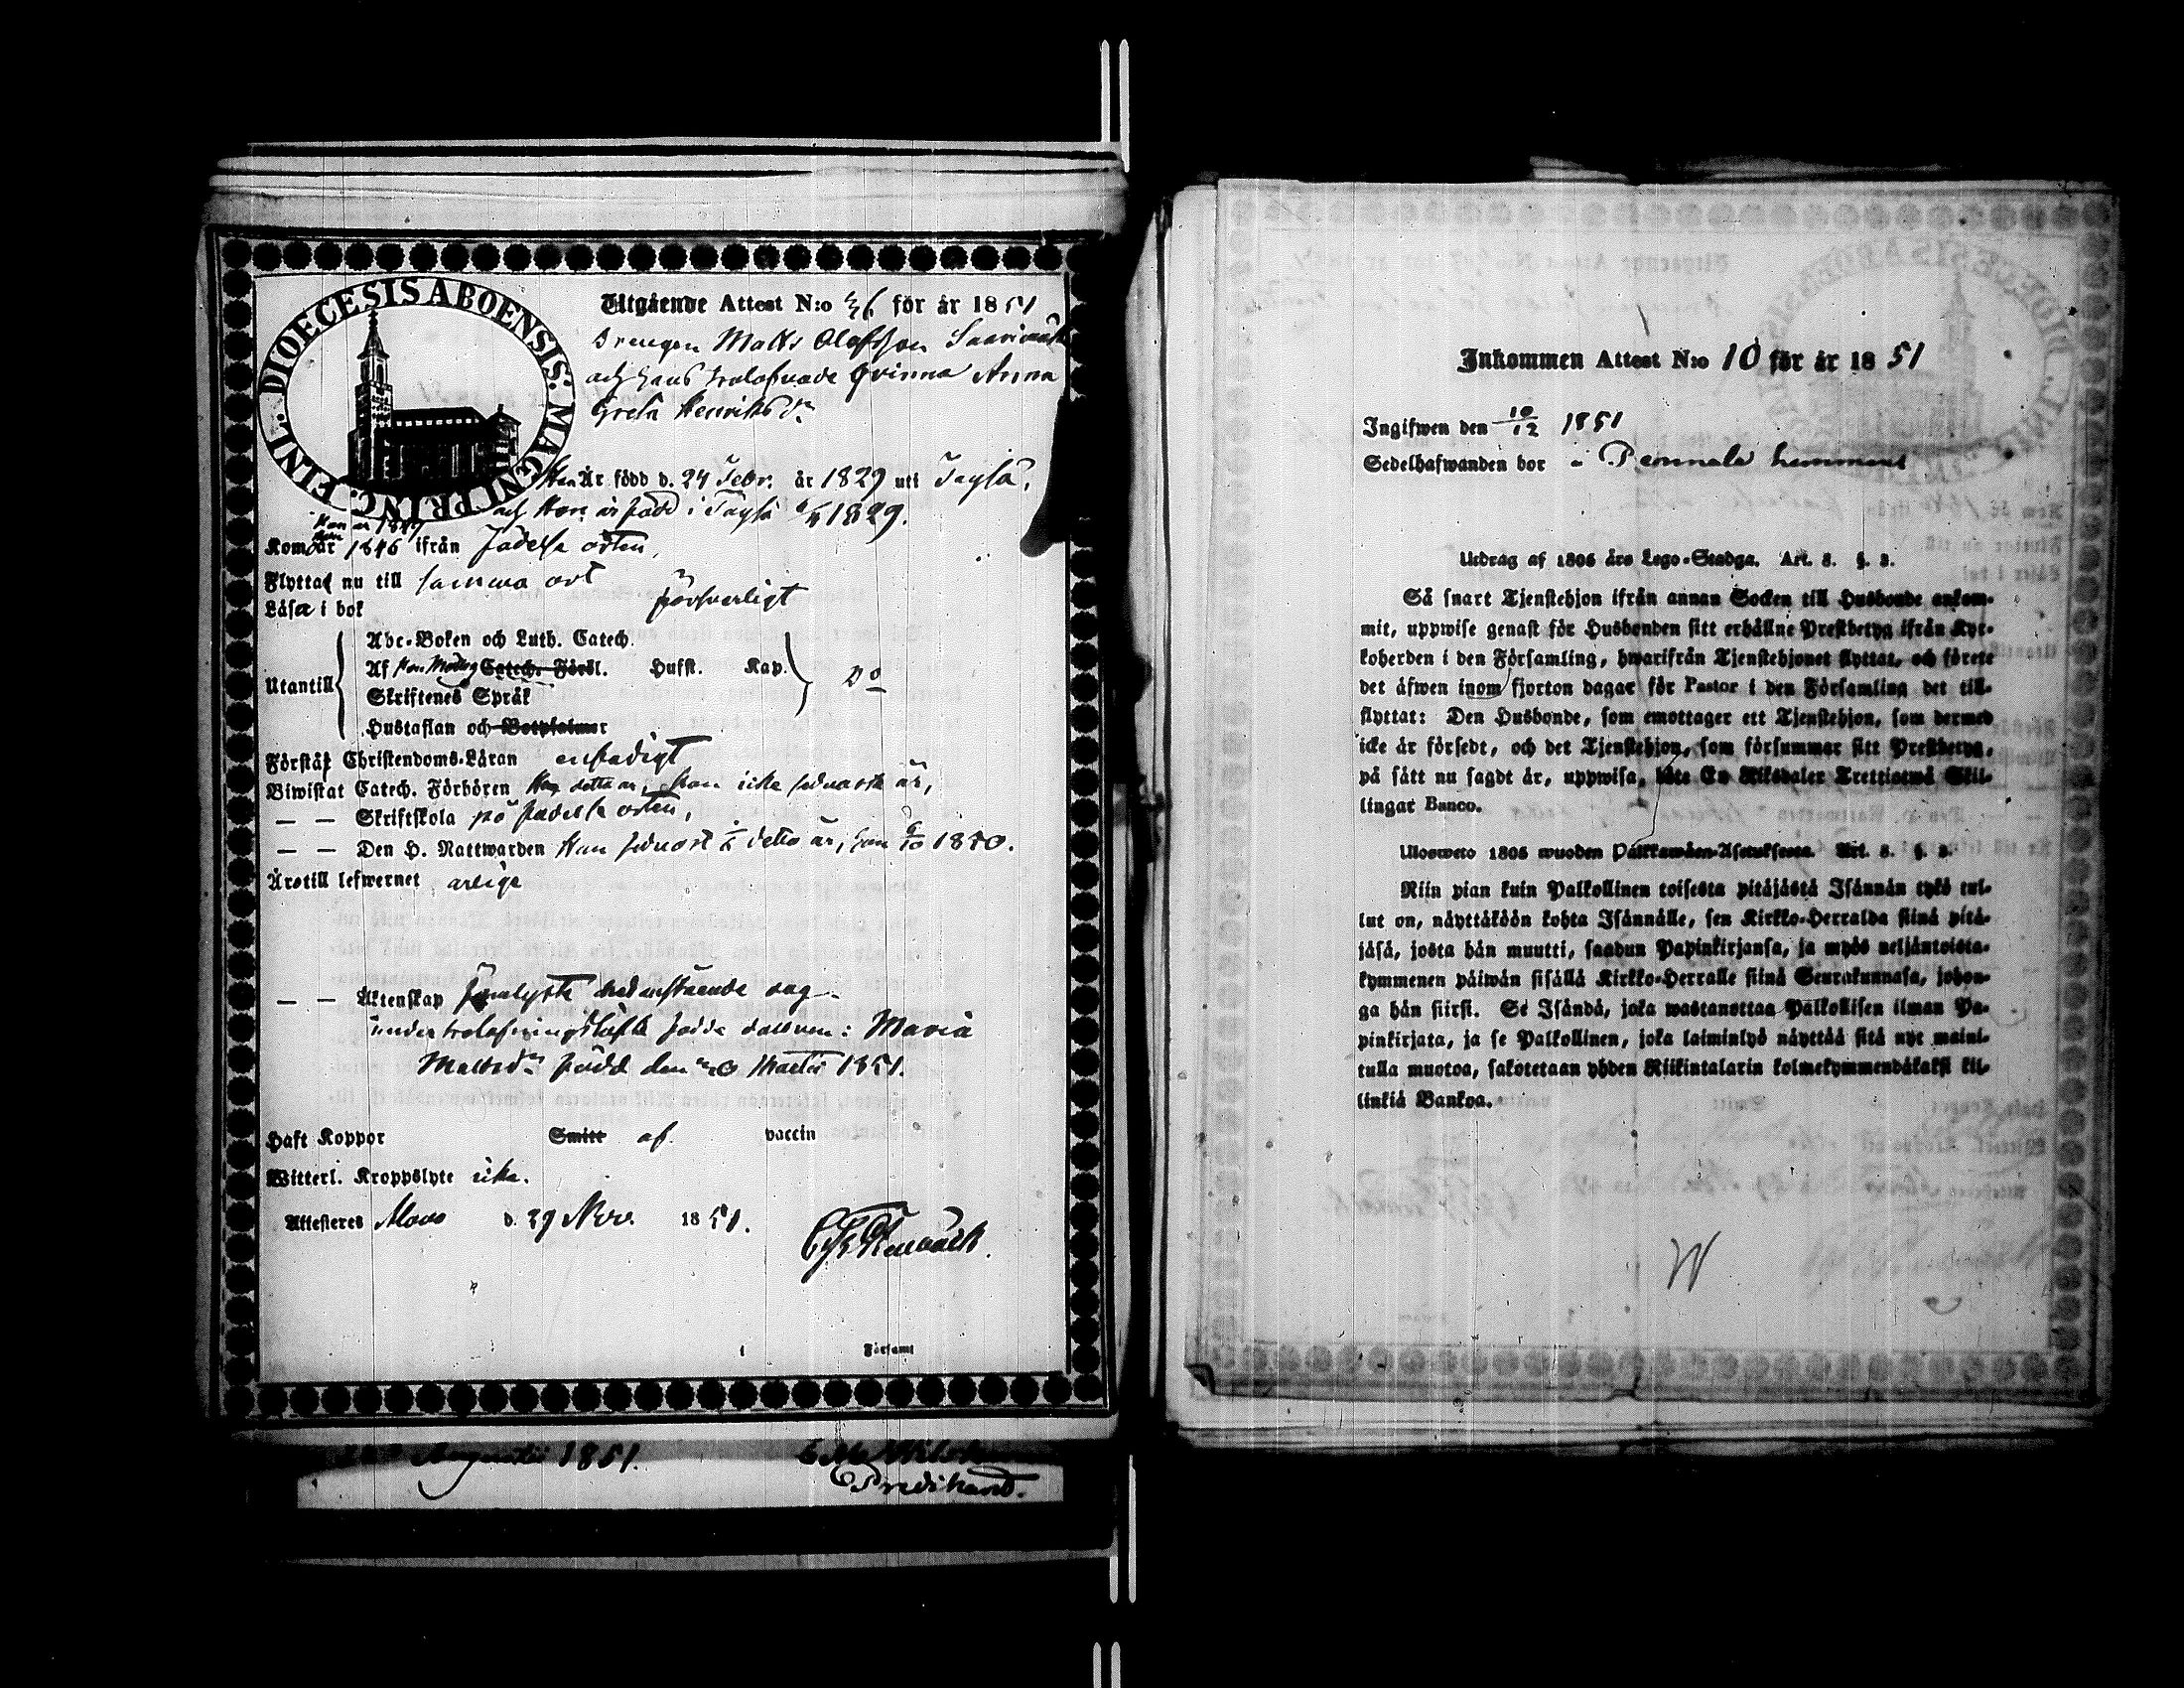 DIOECESIS ABOENSIS: MAGNI PRINC. FINL.
Utgående Attest N:o 36 för år 1851
Drengen Matts Olofsson
och hans trolofvade Qvinna Anna
Greta Henriksdr
Han Är född d. 24 Febr. år 1829 uti Töysä,
och Hon är född i Töysä 1829.
Hon år 1849
Kom han år 1846 ifrån födelse orten,
Flyttat nu till samma ort
Läsa i bok försvarligt
Utantill
Abc-Boken och Luth. Catech.
Af Catech. Försl. Hufst. Kap. Do
Skriftenes Språk
Hustaflan och Botpsalmer
Förstår Christendoms-Läran enfadigt
Biwistat Catech. Förhören Hon detta år, han icke sednaste år,
— — Skriftskola på födelse orten,
— — Den H. Nattwarden Hon sednast i detta år, han 6/10 1850.
Äro till lefwernet ärliga
— — Äktenskap föralyste nedanstående dag
under trolofningstiden födda dottren: Maria
Mattsdr född den 20 Martii 1851.
Haft Koppor Smitt af vaccin
Witterl. Kroppslyte icke.
Attesteres Alavo d. 29 Nov. 1851.
i Församl
Augustii 1851.
Predikant.
Inkommen Attest N:o 10 för år 1851
Ingifwen den 10/12 1851
Sedelhafwanden bor i Pennala hemmans
Utdrag af 1805 års Lego-Stadga. Art. 8. §. 3.
Så snart Tjenstehjon ifrån annan Socken till Husbonde ankom-
mit, uppwise genast för Husbonden sitt erhållne Prestbetyg ifrån Kyr-
koherden i den Församling, hwarifrån Tjenstehjonet flyttat, och förete
det äfwen inom fjorton dagar för Pastor i den Församling det till-
flyttat: Den Husbonde, som emottager ett Tjenstehjon, som dermed
icke är försedt, och det Tjenstehjon, som försummar sitt Prestbetyg,
på sätt nu sagdt är, uppwisa, böte En Riksdaler Trettiotwå Skil-
lingar Banco.
Ulosweto 1805 wuoden Palkkawäen-Asetuksesta. Art. 8. §. 3.
Niin pian kuin Palkollinen toisesta pitäjästä Isännän tykö tul-
lut on, näyttäköön kohta Isännälle, sen Kirkko-Herralda siinä pitä-
jäsä, josta hän muutti, saadun Papinkirjansa, ja myös neljäntoista-
kymmenen päiwän sisällä Kirkko-Herralle siinä Seurakunnasa, johon-
ga hän siirsi. Se Isändä, joka wastanottaa Palkollisen ilman Pa-
pinkirjata, ja se Palkollinen, joka laiminlyö näyttää sitä nyt maini-
tulla muotoa, sakotetaan yhden Riikintalarin kolmekymmendäkaksi kil-
linkiä Bankoa.